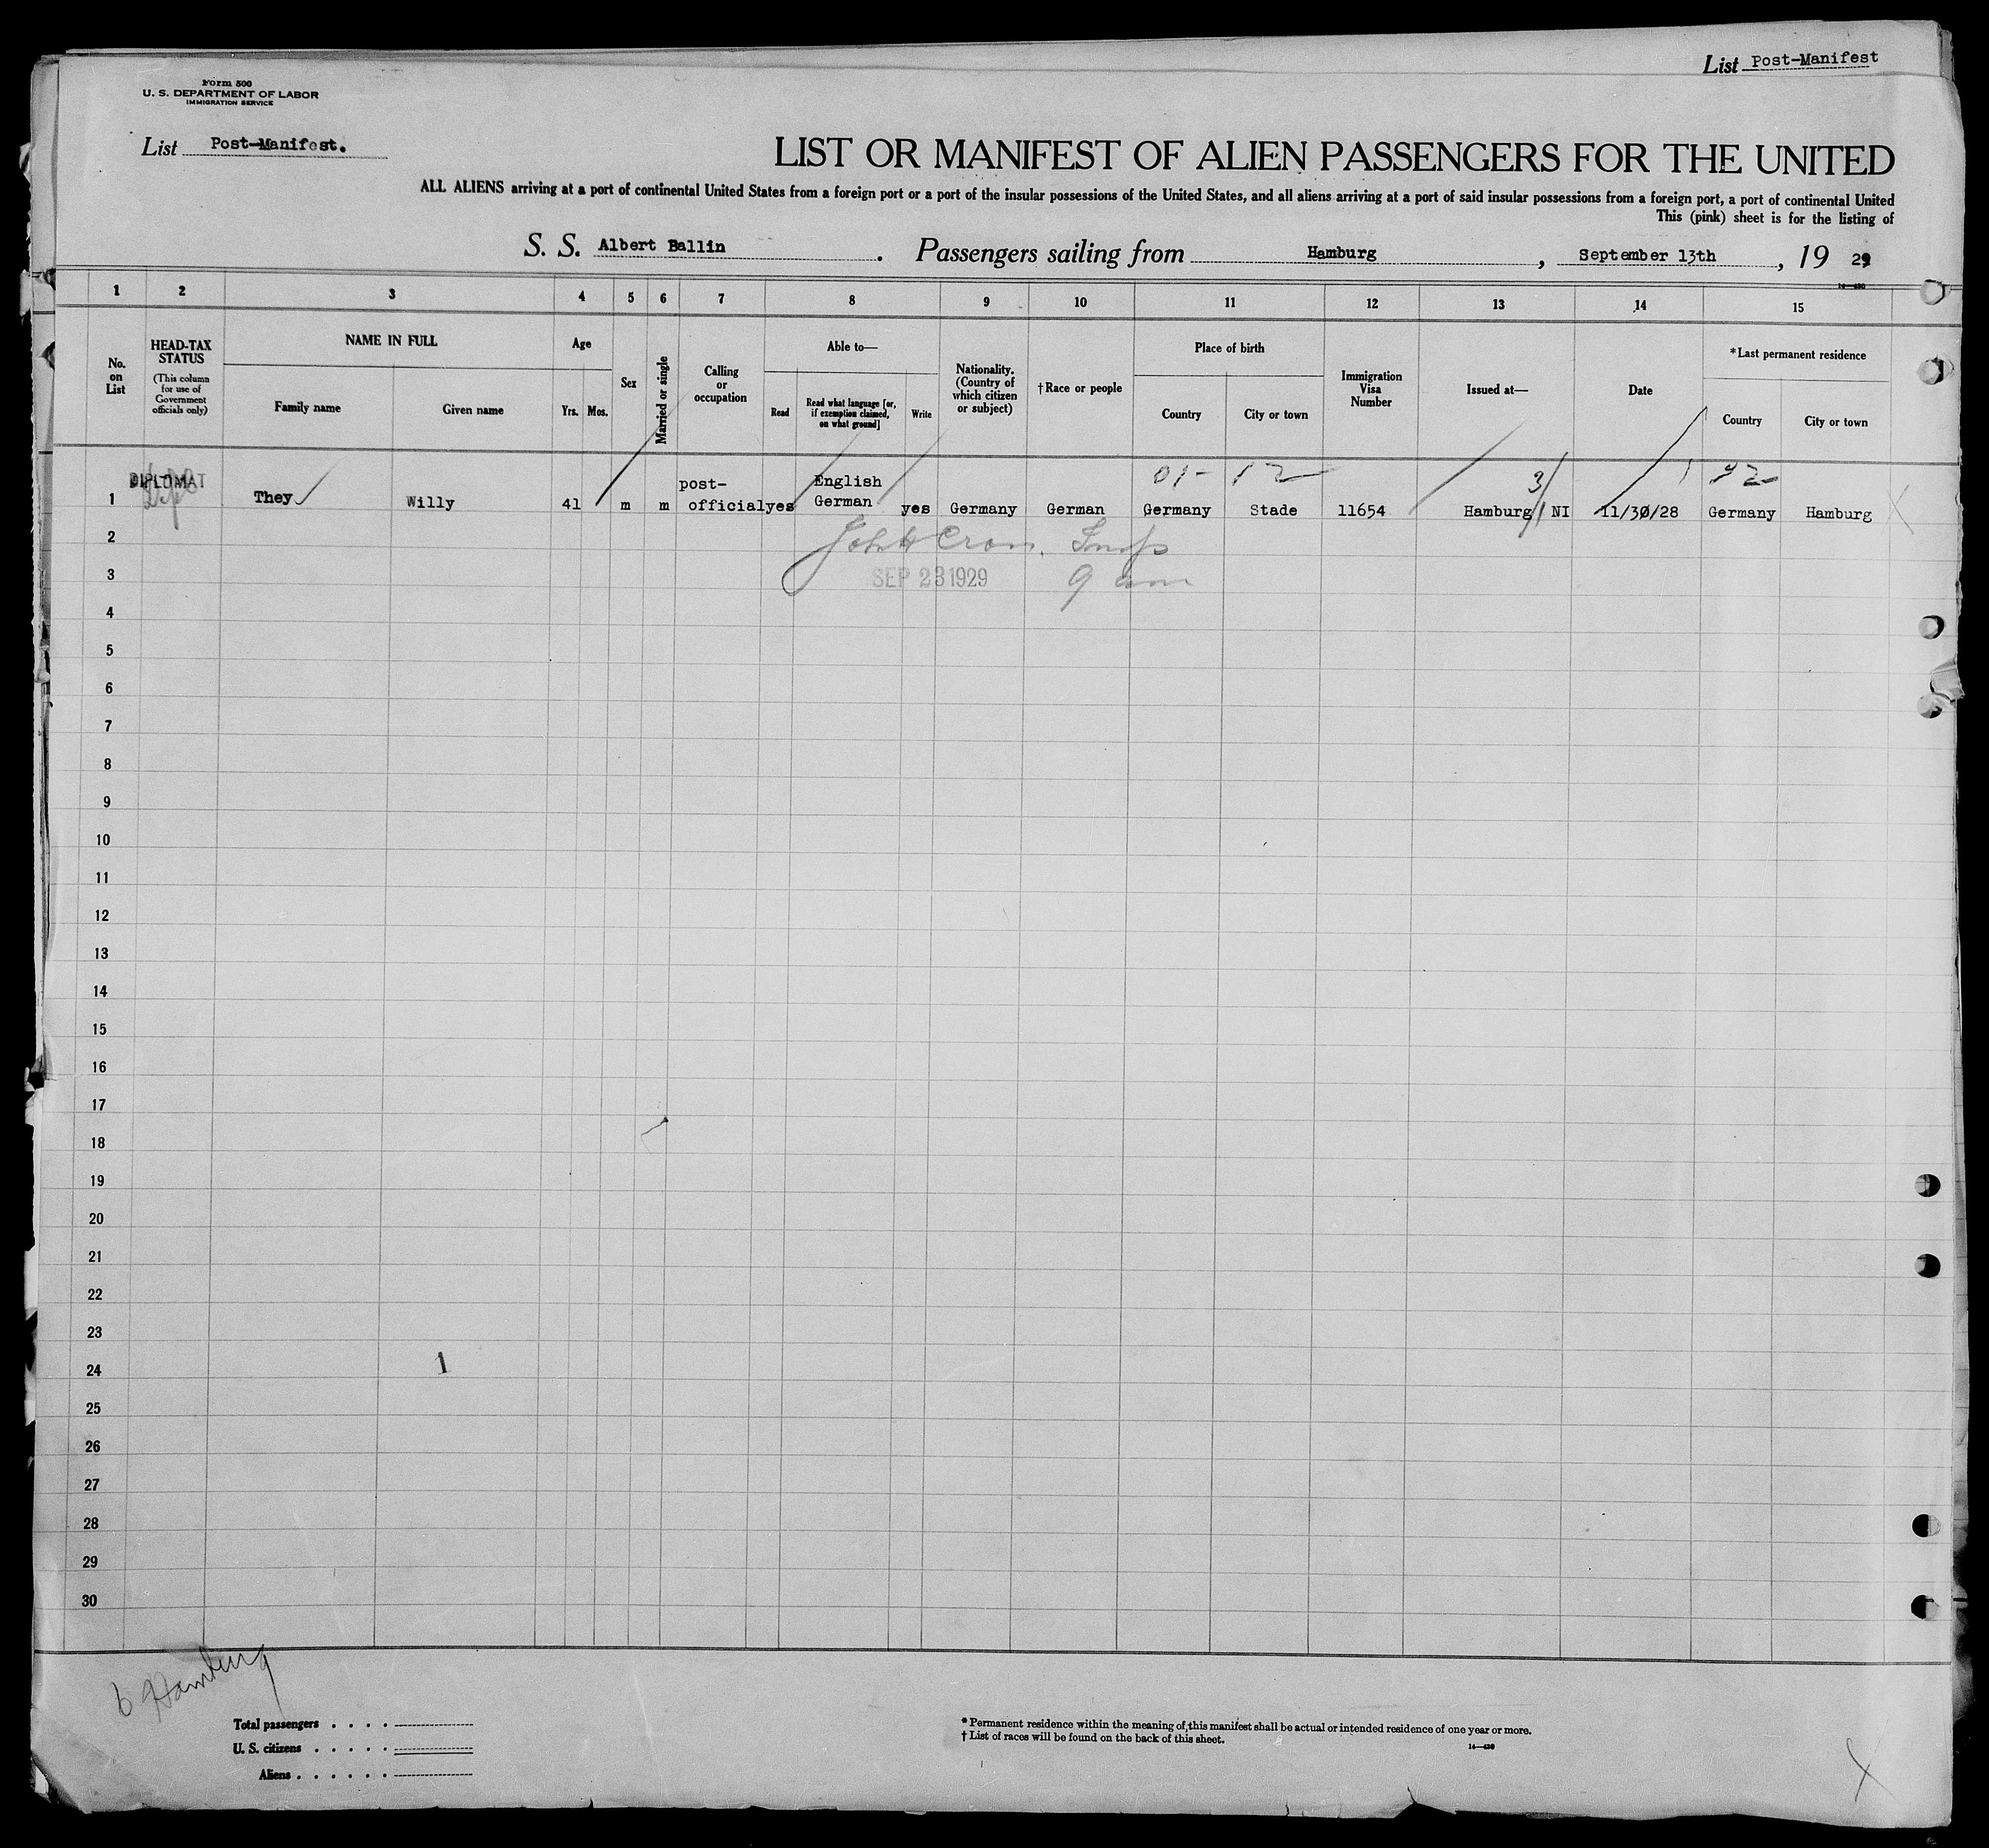 List Post-Manifest
Form 500
U. S. DEPARTMENT OF LABOR
IMMIGRATION SERVICE
List Post-Manifest.
LIST OR MANIFEST OF ALIEN PASSENGERS FOR THE UNITED
ALL ALIENS arriving at a port of continental United States from a foreign port or a port of the insular possessions of the United States, and all aliens arriving at a port of said insular possessions from a foreign port, a port of continental United
This (pink) sheet is for the listing of
S. S. Albert Ballin . Passengers sailing from Hamburg , September 13th , 19 29
1 2 3 4 5 6 7 8 9 10 11 12 13 14 15
No. on List
HEAD-TAX STATUS
(This column for use of Government officials only)
NAME IN FULL
Family name Given name
Age
Yrs. Mos.
Sex
Married or single
Calling or occupation
Able to—
Read
Read what language [or, if exemption claimed, on what ground]
Write
Nationality. (Country of which citizen or subject)
†Race or people
Place of birth
Country City or town
Immigration Visa Number
Issued at—
Date
*Last permanent residence
Country City or town
1 DIPLOMAT They Willy 41 m m post-official yes English German yes Germany German Germany Stade 11654 Hamburg NI 11/30/28 Germany Hamburg
01- 12
3/
2
3 SEP 23 1929 9 am
4
5
6
7
8
9
10
11
12
13
14
15
16
17
18
19
20
21
22
23
24 1
25
26
27
28
29
30
6 Hamburg
Total passengers . . . .
U. S. citizens . . . . .
Aliens . . . . . .
*Permanent residence within the meaning of this manifest shall be actual or intended residence of one year or more.
†List of races will be found on the back of this sheet.
14—430